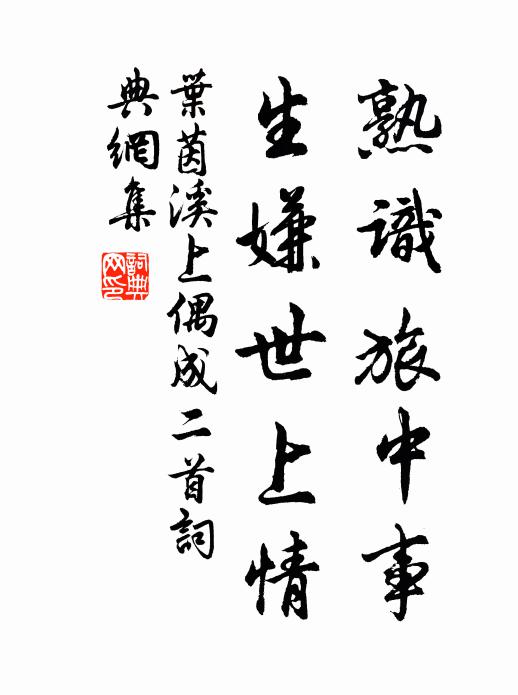 熟識旅中事
生嫌世上情
葉茵溪上偶成二首詞
典網集
詞典
网印